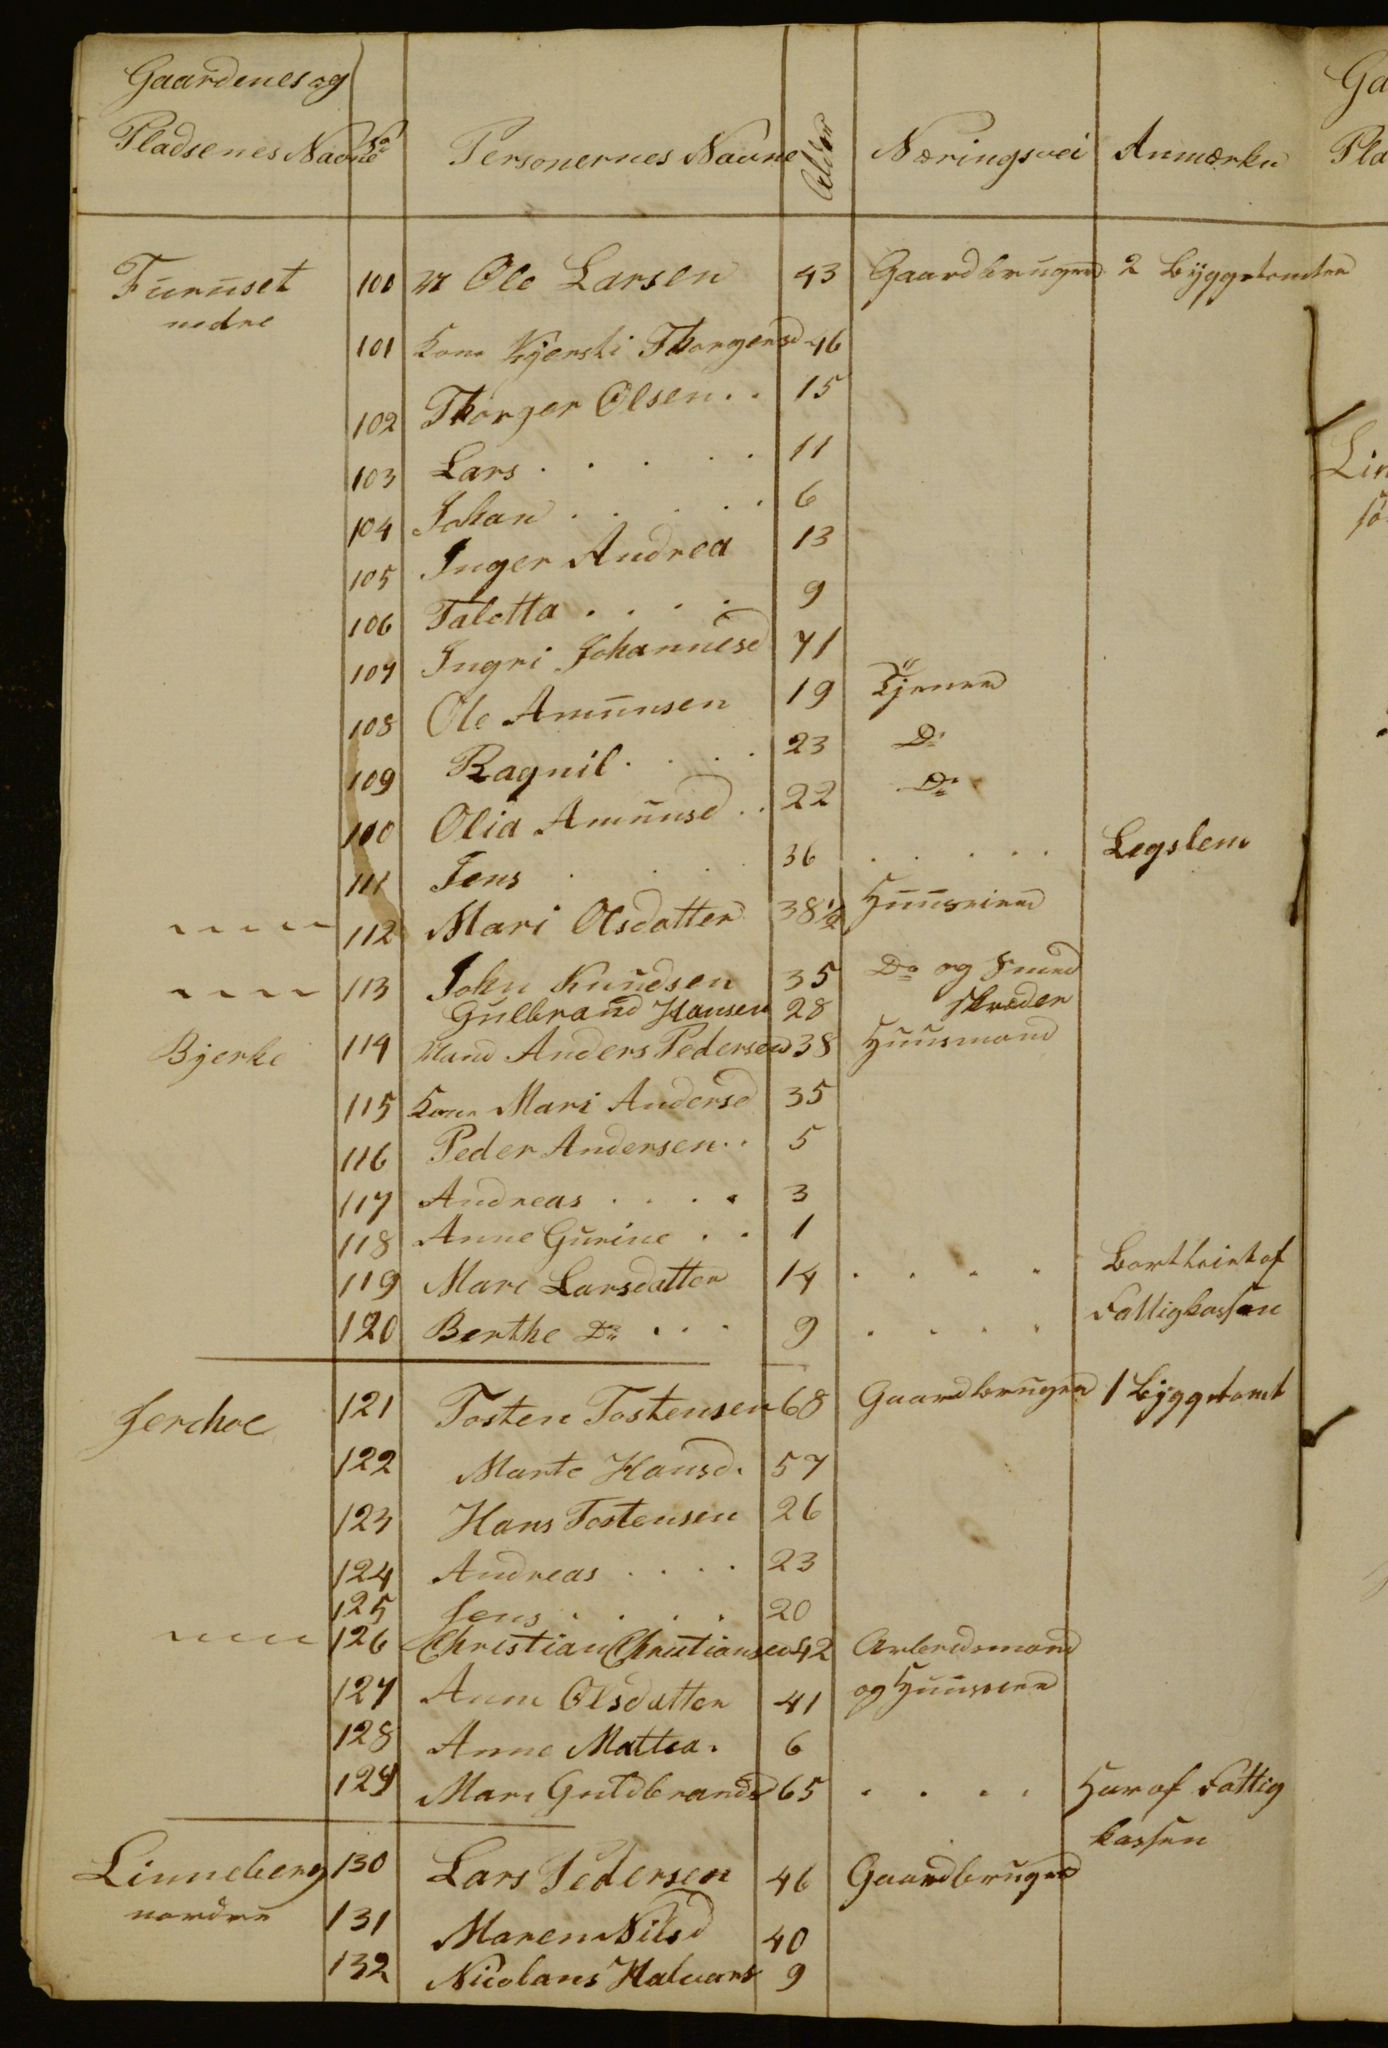 Gaardenes og
Pladsenes Navne No Personernes Navne Alder Næringsvei Anmærkn Pla
Furuset 100 M Ole Larsen 43 Gaardbruger 2 Byggetomter
nedre
101 Kone Kjersti Thorgersd 46
102 Thorger Olsen . . 15
103 Lars . . . . . 11
104 Johan . . . . . 6
105 Inger Andrea 13
106 Taletta . . . . 9
107 Ingri Johannesd 71
108 Ole Amunsen 19 Tjener
109 Ragnil . . . . 23 Do
100 Olia Amunsd . . 22 Do
111 Jens . . . 36 . . . . . Legslem
112 Mari Olsdatter 38½ Huusleier
113 John Knudsen 35 Do og Smed
Gulbrand Hansen 28 Skreder
Bjerke 114 Mand Anders Pedersen 38 Huusmand
115 Kone Mari Andersd 35
116 Peder Andersen . . 5
117 Andreas . . . . 3
118 Anne Gurine . . 1
119 Mari Larsdatter 14 . . . . Bortleiet af
120 Berthe Do . . . 9 . . . . Fattigkassen
Jerchoe 121 Tosten Tostensen 68 Gaardbruger 1 Byggetomt
122 Marte Hansd. 57
123 Hans Tostensen 26
124 Andreas . . . . 23
125 Jens . . . . 20
126 Christian Christiansen 42 Arbeidsmand
127 Anne Olsdatter 41 og Huusleier
128 Anne Mattea . 6
129 Mari Guldbrandsd 65 . . . . Har af Fattig
kassen
Linneberg 130 Lars Pedersen 46 Gaardbruger
nordre
131 Maren Nilsd 40
132 Nicolaus Halvors 9